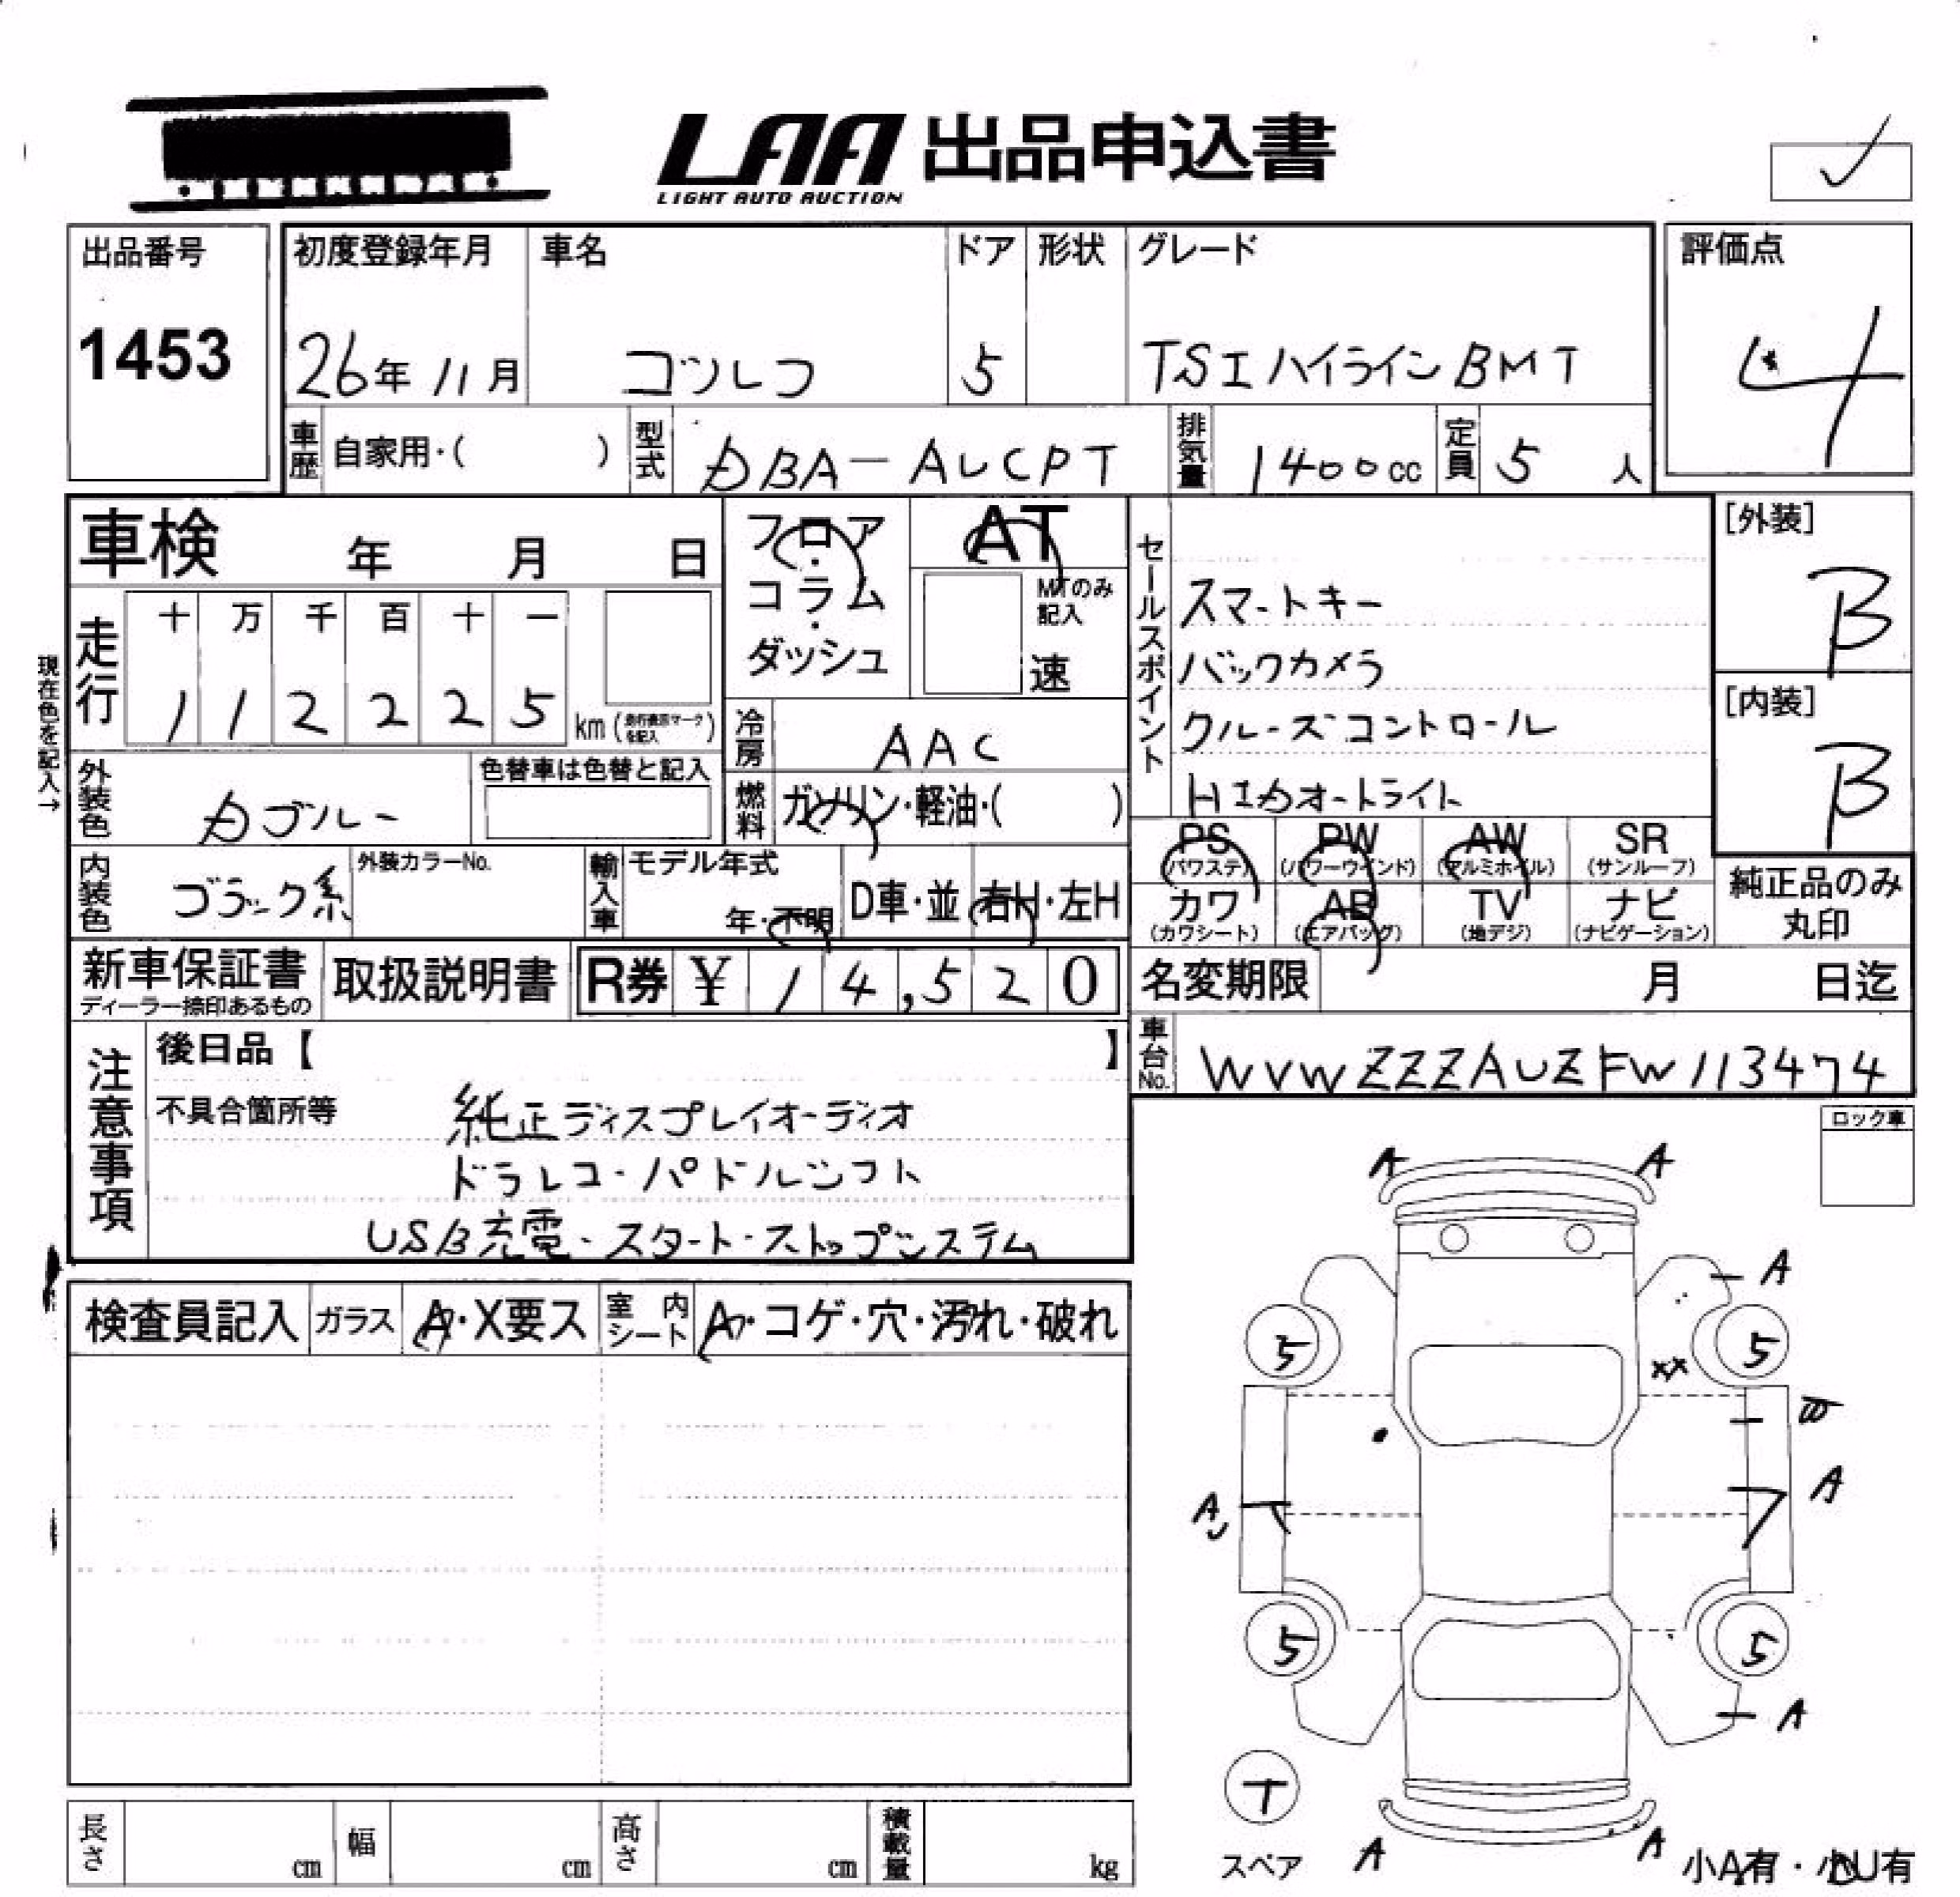 LAA 出品申込書
LIGHT AUTO AUCTION
出品番号
1453
初度登録年月 車名 ドア 形状 グレード
26年 11月 ゴルフ 5 TSI ハイライン BMT
評価点
4
車歴 自家用・( ) 型式 DBA-AUCPT 排気量 1400cc 定員 5 人
車検 年 月 日
フロア・コラム・ダッシュ
AT
MTのみ記入
速
セールスポイント
スマートキー
バックカメラ
クルーズコントロール
HIDオートライト
[外装]
B
[内装]
B
現在色を記入→
走行 十 万 千 百 十 一
1 1 2 2 2 5 km (走行表示マークを記入)
冷房 AAC
外装色 Dブルー 色替車は色替と記入
燃料 ガソリン・軽油・( )
PS (パワステ) PW (パワーウインド) AW (アルミホイル) SR (サンルーフ)
カワ (カワシート) AB (エアバッグ) TV (地デジ) ナビ (ナビゲーション)
純正品のみ丸印
内装色 ブラック系 外装カラーNo. 輸入車 モデル年式 年・不明 D車・並 右H・左H
新車保証書 ディーラー捺印あるもの 取扱説明書 R券 ¥ 14,520
名変期限 月 日迄
車台No. WVWZZZAUZFW113474
注意事項
後日品【 】
不具合箇所等 純正ディスプレイオーディオ
ドラレコ・パドルシフト
USB充電・スタート・ストップシステム
ロック車
検査員記入 ガラス A・X要ス 室内シート A・コゲ・穴・汚れ・破れ
A A
A
5 5
XX
A
A
5 5
A
T
スペア
A A
小A有・小U有
長さ cm 幅 cm 高さ cm 積載量 kg